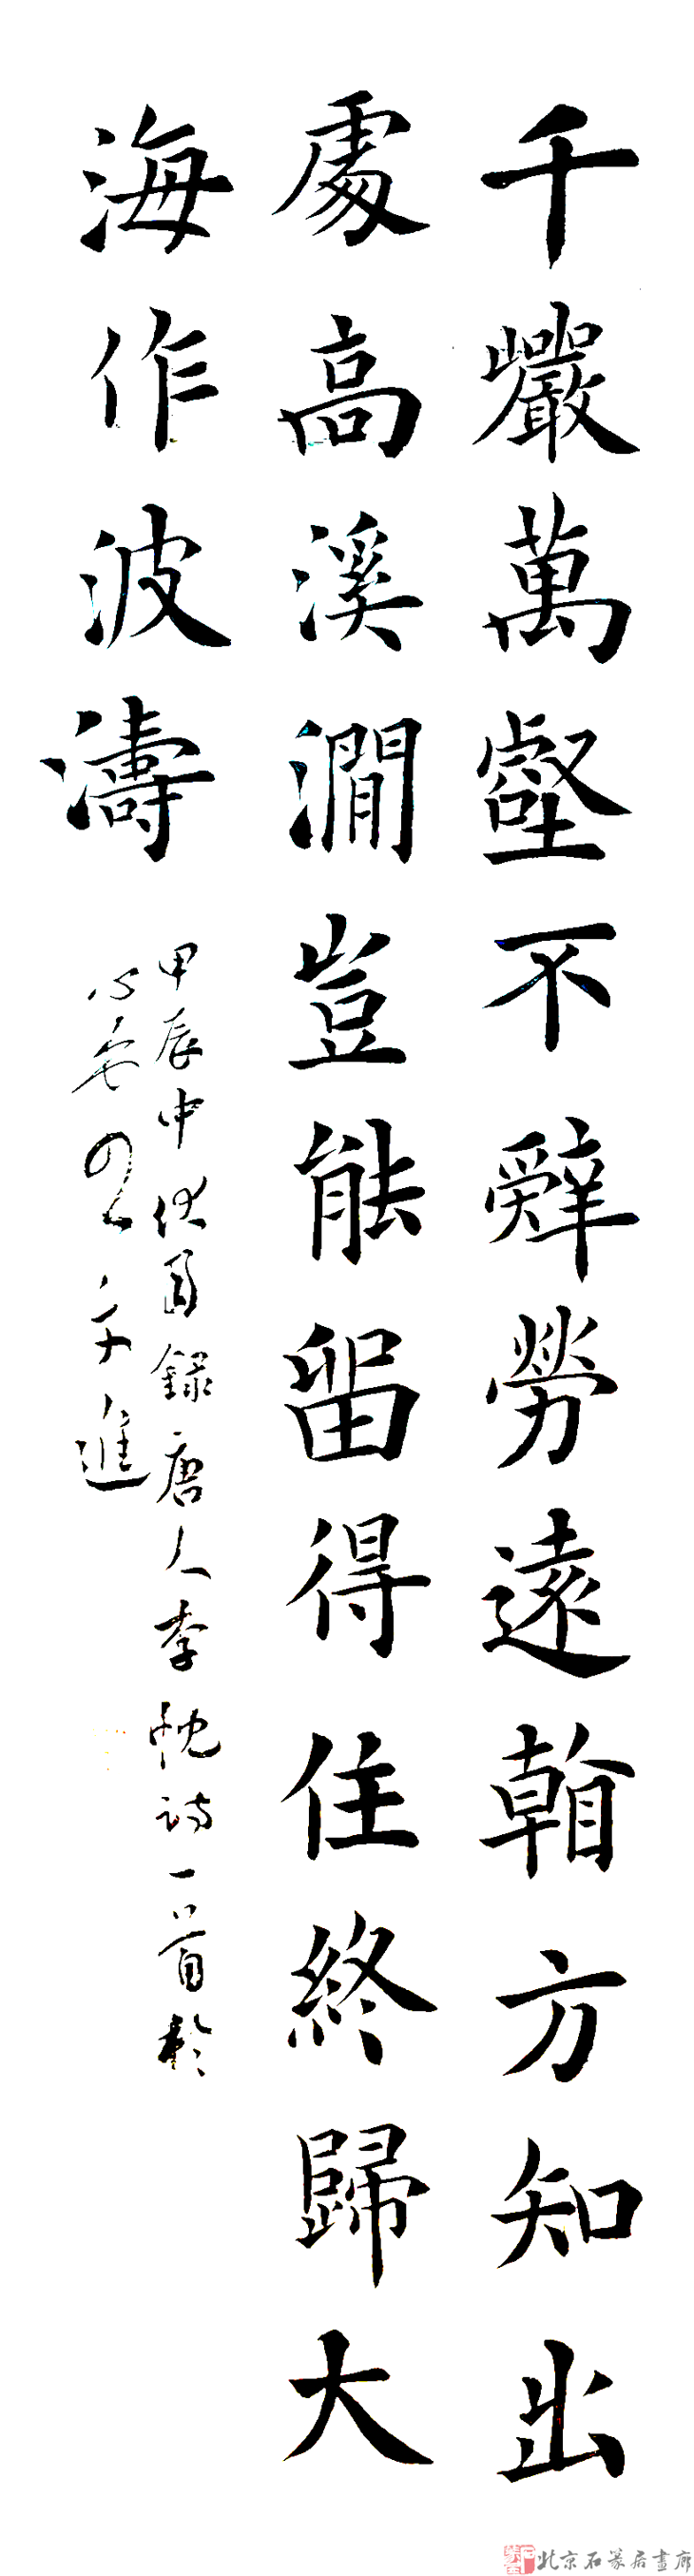 千巖萬壑不辭勞遠看方知出
處高溪澗豈能留得住終歸大
海作波濤
甲辰中伏月錄唐人李忱詩一首於
心安
進
北京石篆居畫廊